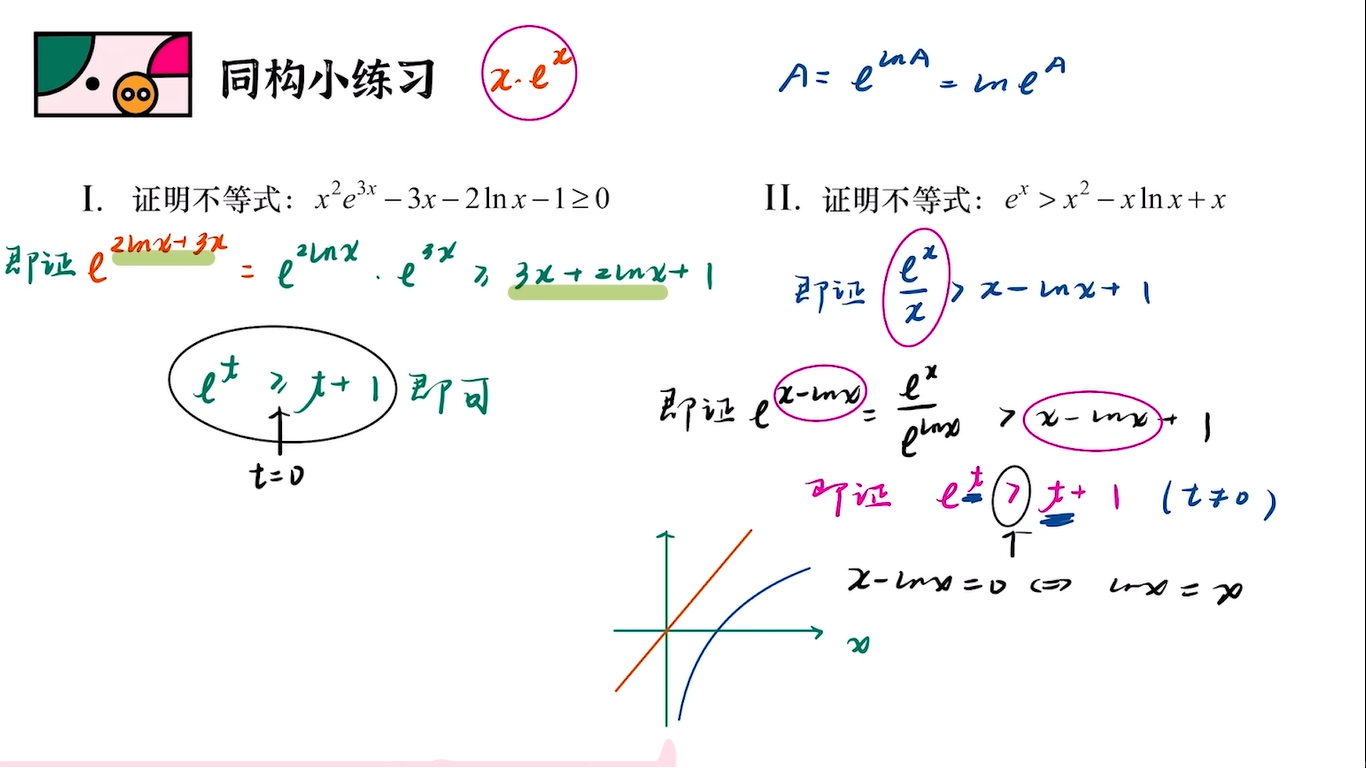 同构小练习 x·e^x A = e^{lnA} = ln e^A
I. 证明不等式：x²e^{3x} − 3x − 2ln x − 1 ≥ 0
即证 e^{2lnx+3x} = e^{2lnx} · e^{3x} ≥ 3x + 2lnx + 1
e^t ≥ t + 1 即可
t = 0
II. 证明不等式：e^x > x² − x ln x + x
即证 e^x/x > x − lnx + 1
即证 e^{x−lnx} = e^x/e^{lnx} > x − lnx + 1
即证 e^t > t + 1 (t ≠ 0)
x − lnx = 0 ⇔ lnx = x
x